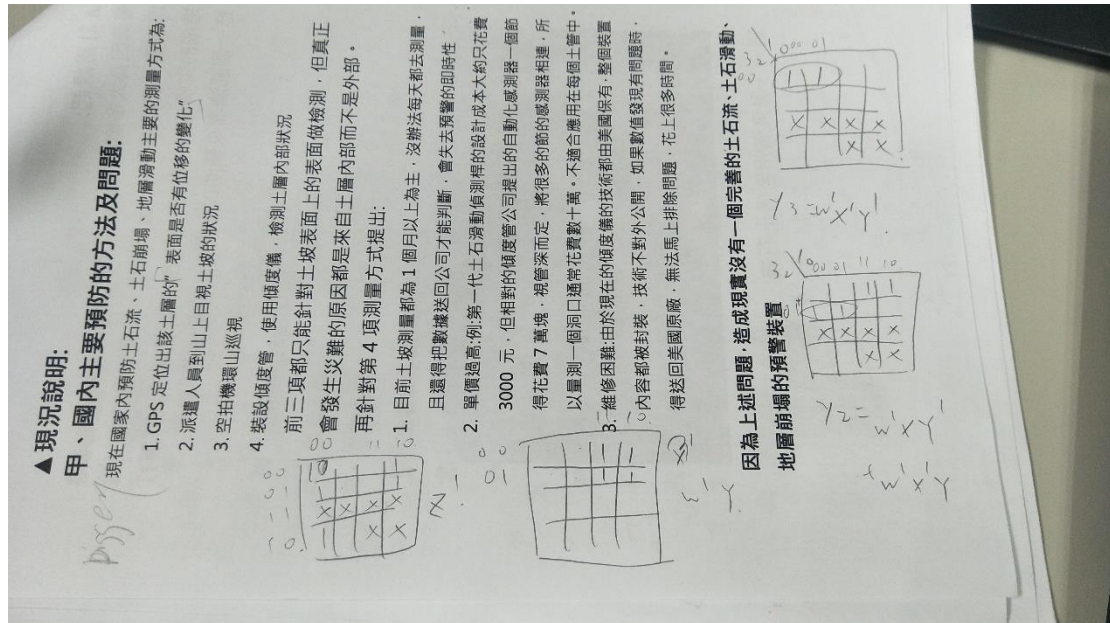 ▲現況說明:
甲、國內主要預防的方法及問題:
現在國家內預防土石流、土石崩塌、地層滑動主要的測量方式為:
1. GPS 定位出該土層的“表面是否有位移的變化”
2. 派遣人員到山上目視土坡的狀況
3. 空拍機環山巡視
4. 裝設傾度管，使用傾度儀，檢測土層內部狀況
前三項都只能針對土坡表面上的表面做檢測，但真正
會發生災難的原因都是來自土層內部而不是外部。
再針對第 4 項測量方式提出:
1. 目前土坡測量都為 1 個月以上為主，沒辦法每天都去測量，
且還得把數據送回公司才能判斷，會失去預警的即時性
2. 單價過高:例:第一代土石滑動偵測桿的設計成本大約只花費
3000 元，但相對的傾度管公司提出的自動化感測器一個節
得花費 7 萬塊，視管深而定，將很多的節的感測器相連，所
以量測一個洞口通常花費數十萬。不適合應用在每個土管中。
3. 維修困難:由於現在的傾度儀的技術都由美國保有，整個裝置
內容都被封裝，技術不對外公開，如果數值發現有問題時，
得送回美國原廠，無法馬上排除問題，花上很多時間。
因為上述問題，造成現實沒有一個完善的土石流、土石滑動、
地層崩塌的預警裝置